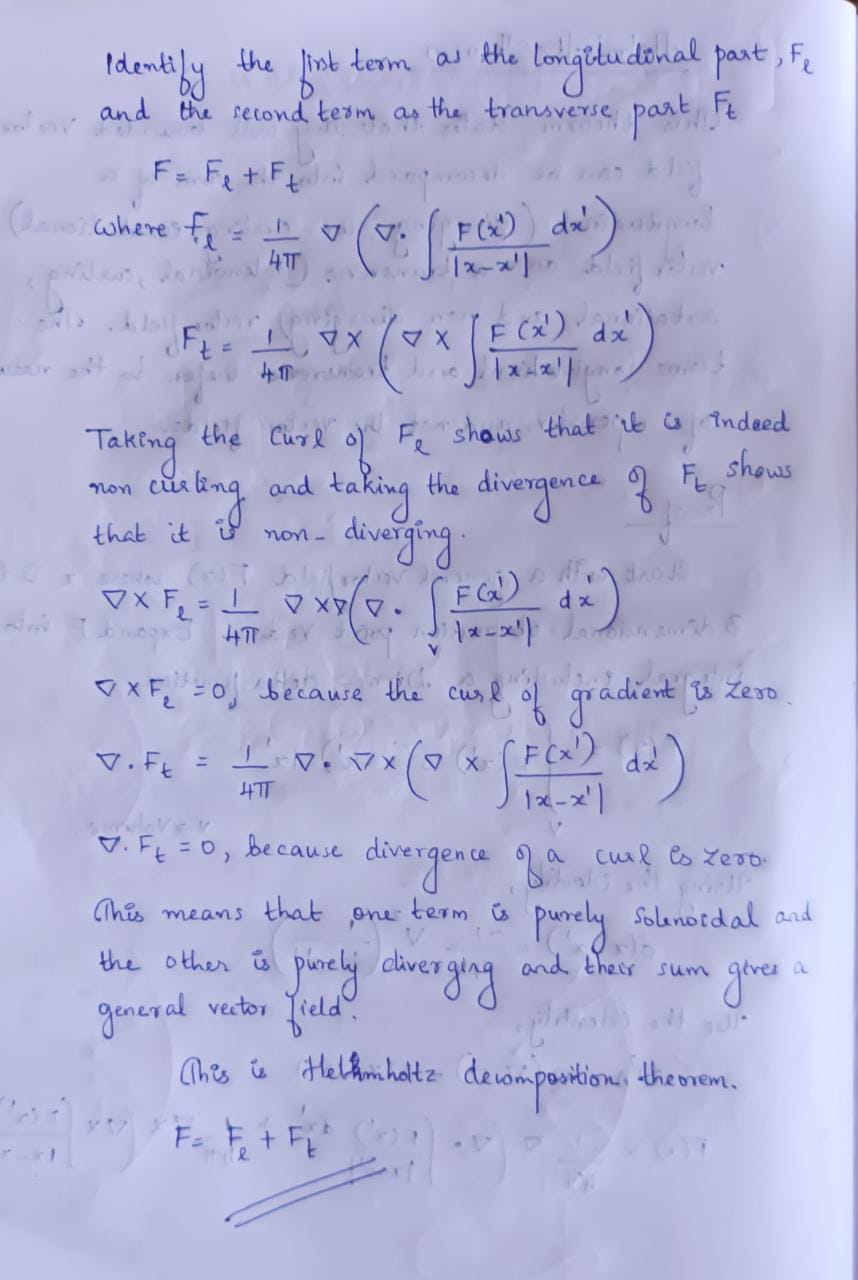 Identify the first term as the longitudinal part, Fℓ
and the second term as the transverse part Ft
F = Fℓ + Ft
where fℓ = 1/4π ∇ (∇. ∫ F(x')/|x-x'| dx')
Ft = 1/4π ∇ × (∇ × ∫ F(x')/|x-x'| dx')
Taking the Curl of Fℓ shows that it is indeed
non curling and taking the divergence of Ft shows
that it is non-diverging.
∇ × Fℓ = 1/4π ∇×∇(∇. ∫v F(x')/|x-x'| dx)
∇ × Fℓ = 0, because the curl of gradient is zero.
∇. Ft = 1/4π ∇. ∇ × (∇ × ∫ F(x')/|x-x'| dx')
∇. Ft = 0, because divergence of a curl is zero.
This means that one term is purely solenoidal and
the other is purely diverging and their sum gives a
general vector field.
This is Helmholtz decomposition theorem.
F = Fℓ + Ft